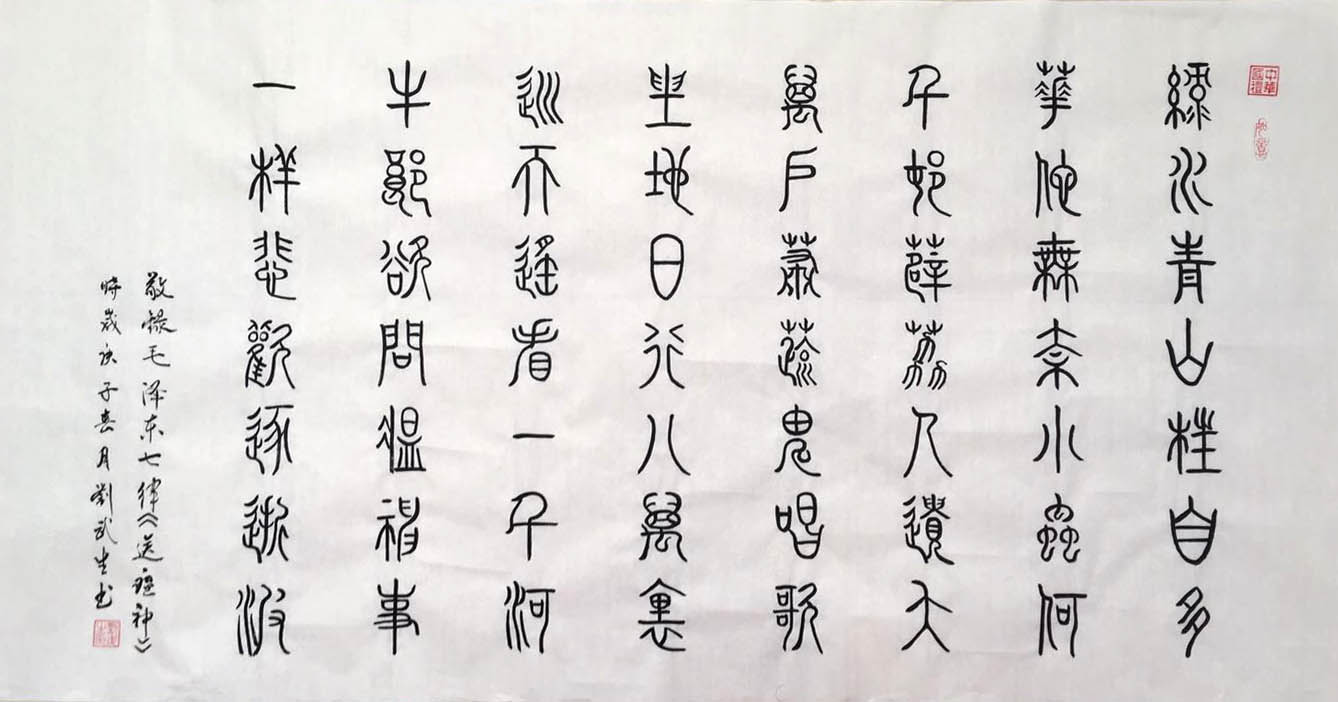 中華國禮
綠水青山枉自多
華佗無奈小蟲何
千邨薜荔人遺矢
萬戶蕭蔬鬼唱歌
坐地日行八萬裏
巡天遙看一千河
牛郎欲問瘟神事
一样悲歡逐逝波
敬錄毛泽东七律《送瘟神》
時歲庚子喜月劉武生书